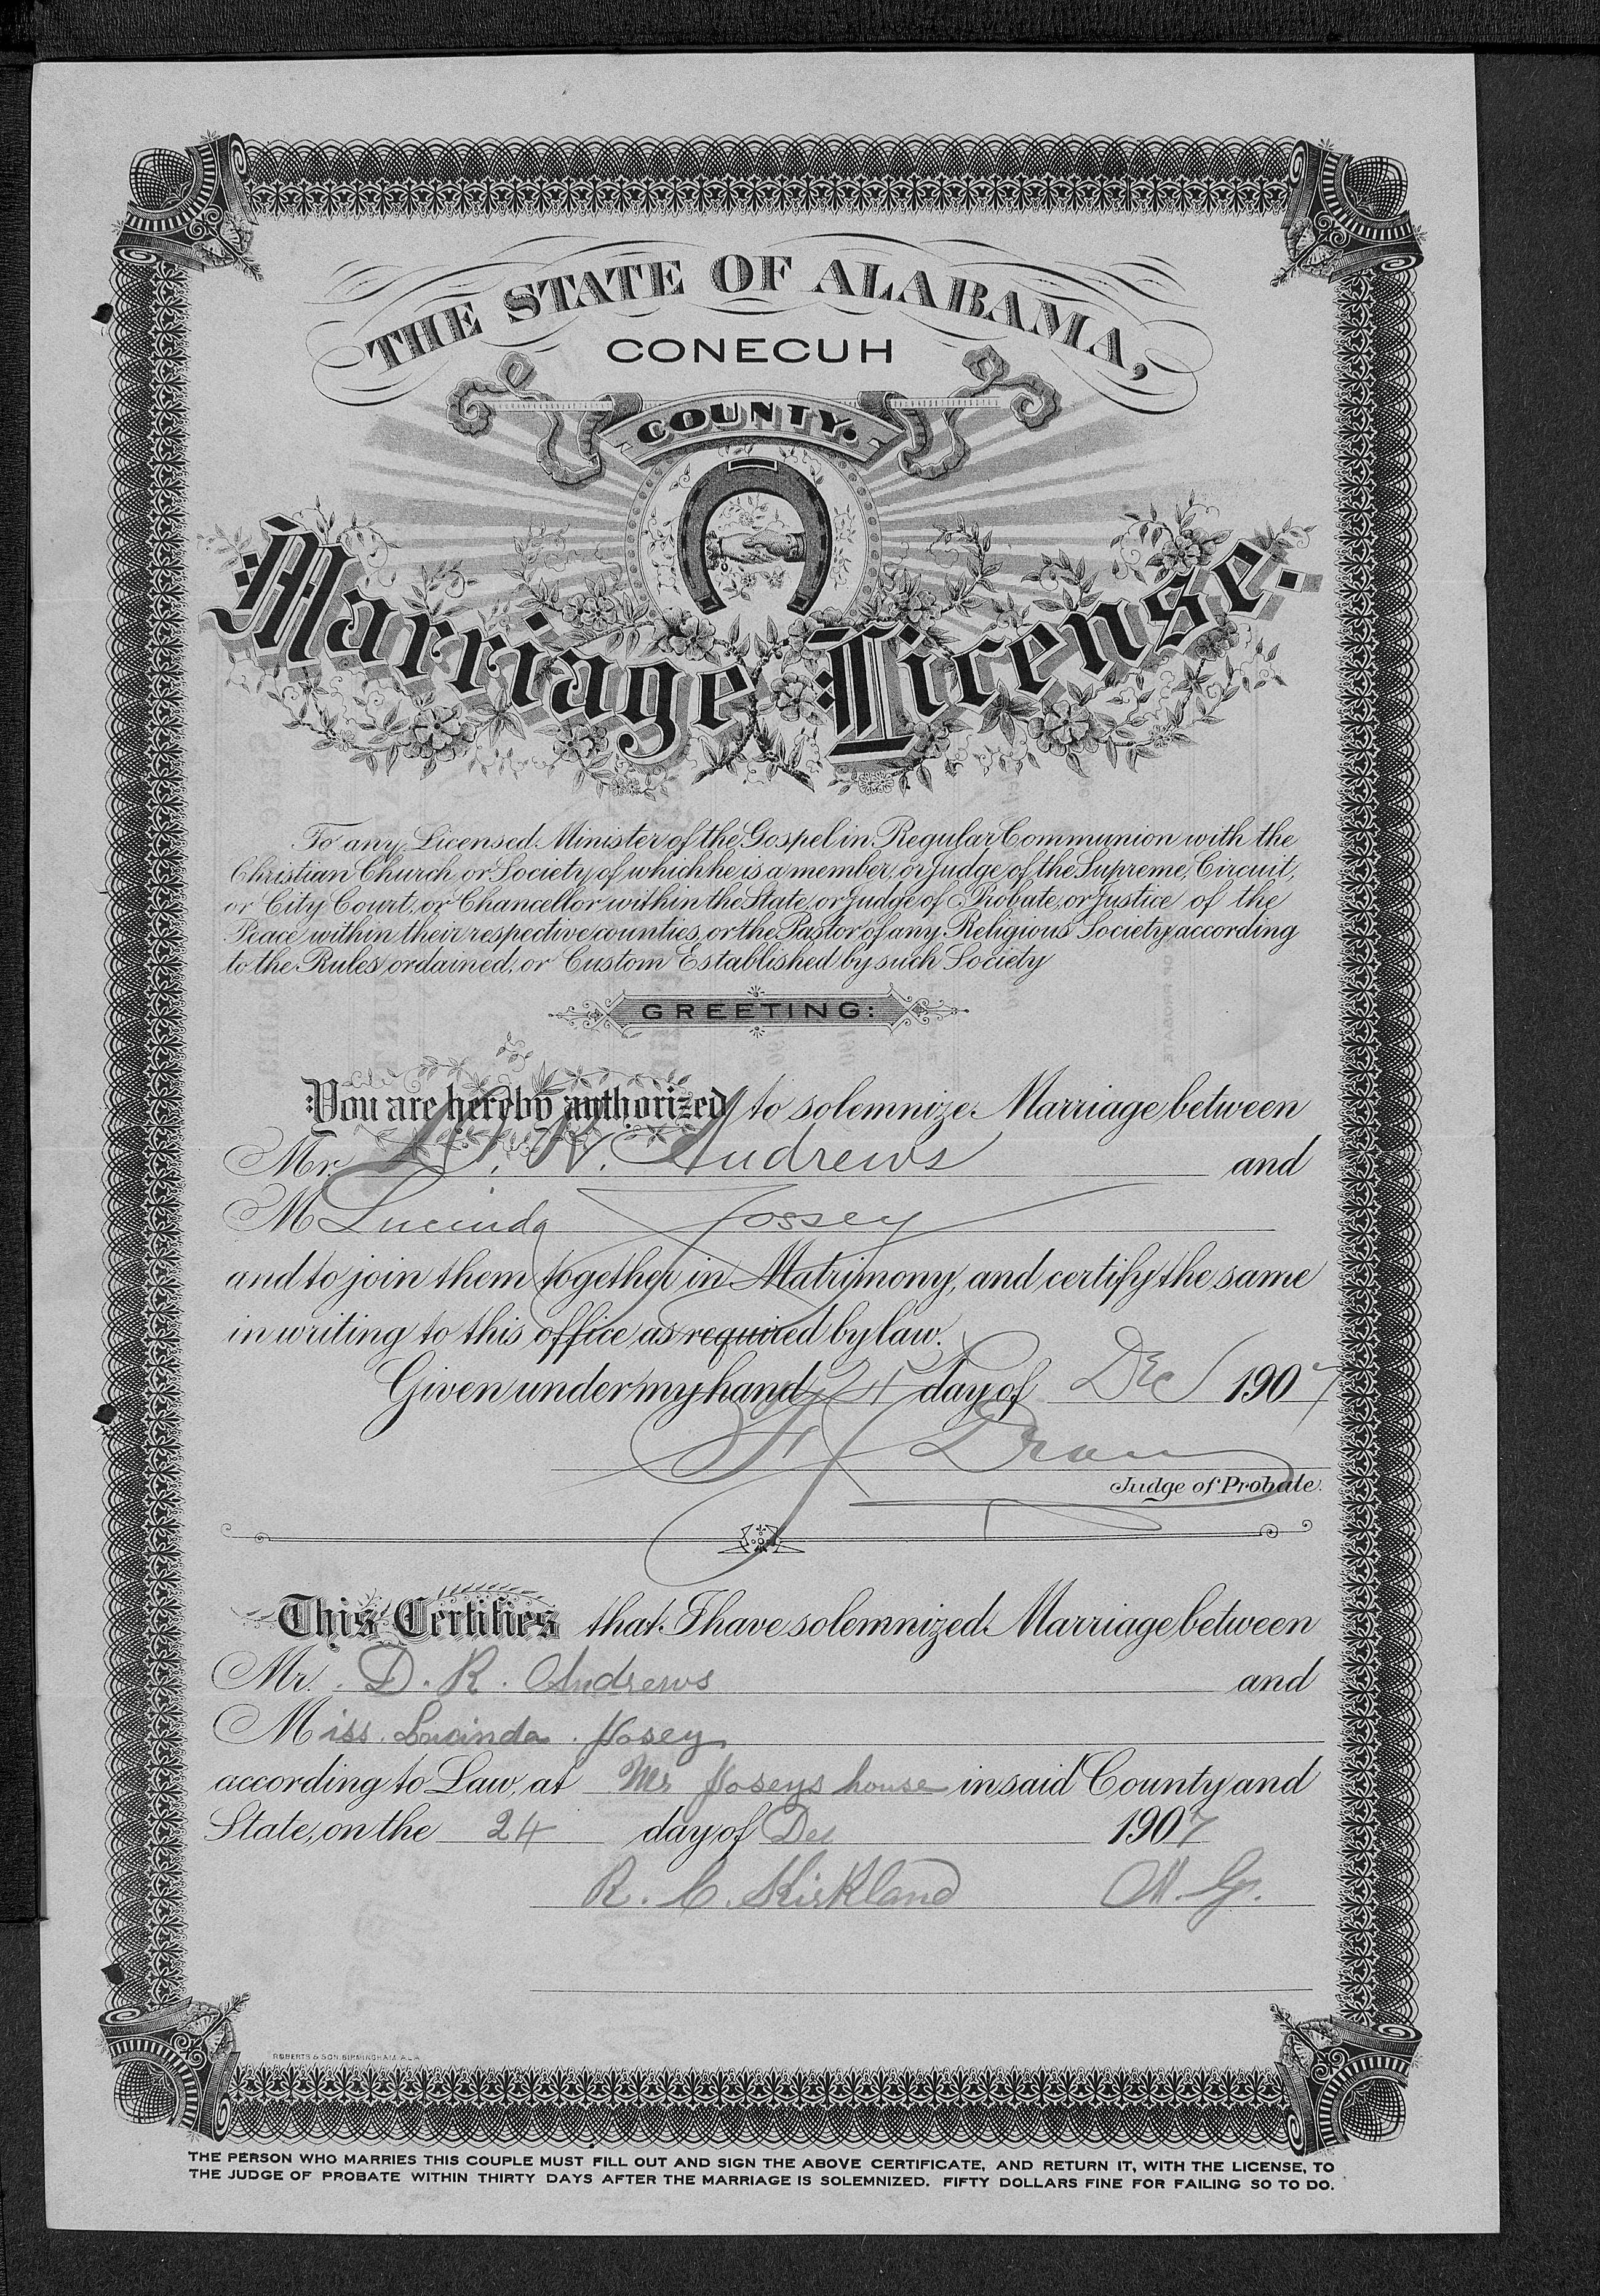 THE STATE OF ALABAMA,
CONECUH
COUNTY.
Marriage License.
To any Licensed Minister of the Gospel in Regular Communion with the
Christian Church or Society of which he is a member, or Judge of the Supreme, Circuit,
or City Court, or Chancellor within the State, or Judge of Probate, or Justice of the
Peace within their respective counties, or the Pastor of any Religious Society according
to the Rules ordained, or Custom Established by such Society
GREETING:
You are hereby authorized to solemnize Marriage between
Mr. D. R. Andrews and
M Lucinda Jossey
and to join them together in Matrimony, and certify the same
in writing to this office as required by law.
Given under my hand, 24 day of Dec 1907
F. J. Dean
Judge of Probate.
This Certifies that I have solemnized Marriage between
Mr. D. R. Andrews and
Miss. Lucinda Josey
according to Law, at Mr Joseys house in said County and
State, on the 24 day of Dec 1907
R. C. Kirkland M. G.
ROBERTS & SON, BIRMINGHAM, ALA
THE PERSON WHO MARRIES THIS COUPLE MUST FILL OUT AND SIGN THE ABOVE CERTIFICATE, AND RETURN IT, WITH THE LICENSE, TO
THE JUDGE OF PROBATE WITHIN THIRTY DAYS AFTER THE MARRIAGE IS SOLEMNIZED. FIFTY DOLLARS FINE FOR FAILING SO TO DO.